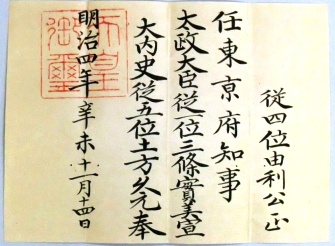 從四位由利公正
任東京府知事
太政大臣從一位三條實美宣
大内史從五位土方久元奉
明治四年辛未十一月十四日
天皇
御璽